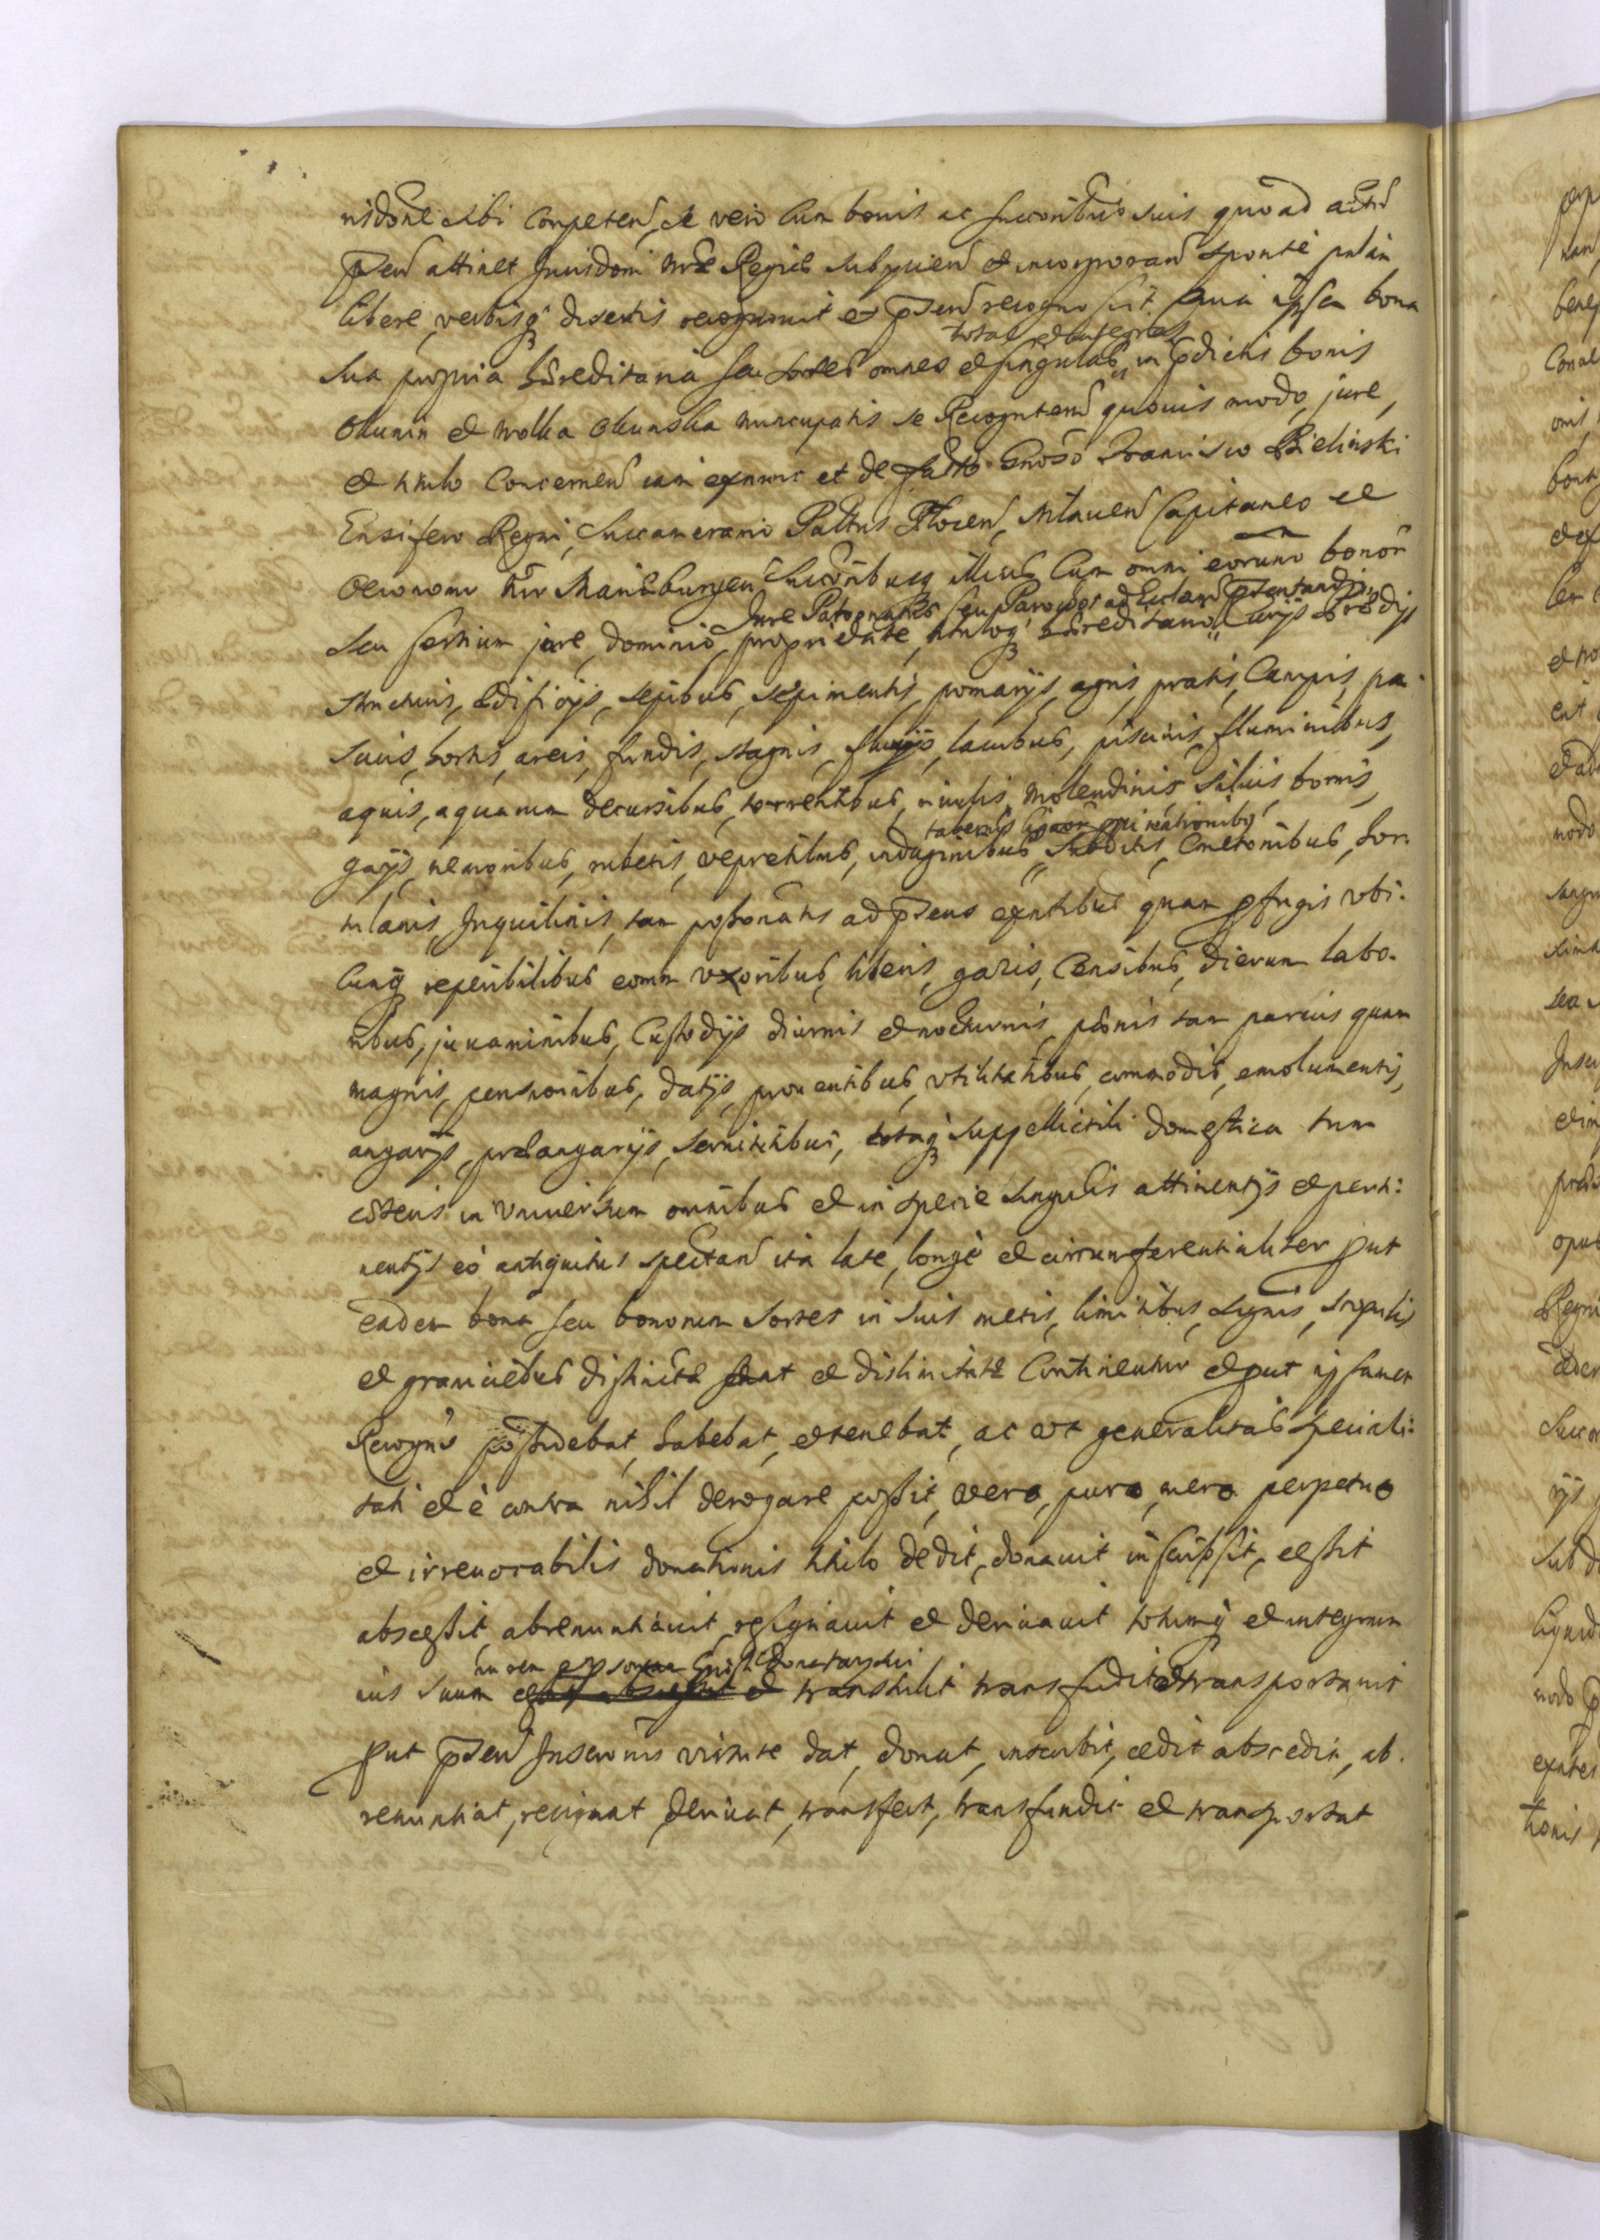 risdone sibi Competen, se vero Cum bonis ac Succoribus suis quoad actū
psen attinet Jurisdoni nrae Regiae subijcien et incorporan sponte palam
libere, verbisq disertis recognouit et psen recognoscit. Quia ipse bona
sua propria haereditaria seu sortes omnes et singulas, in pdictis bonis
totas et integras
Okunin et Wolka Okunska nuncupatis se Recognitem quouis modo, jure,
et titulo Concernen iam exnunc et de facto Gnoso Francisco Bielinski
Ensifero Regni, Succamerario Palttus Plocen, Mlauen Capitaneo et
Oeconomo nro Mariaeburgen Succoribusq illius Cum omni eorum bonor
Jure Patronatus seu Parochos ad Ecclam psentandi
seu sortium jure, dominio, proprietate, tituloq haereditario, Curijs Praedijs
structuris, aedificijs, sepibus, sepimentis, pomarijs, agris, pratis, Campis, pa-
scuis, hortis, areis, fundis, stagnis, fluuijs, lacubus, piscinis, fluminibus,
aquis, aquarum decursibus, torrentibus, riuulis, Molendinis siluis, borris,
tabernis
gaijs, nemoribus, rubetis, vepretibus, indaginibus, Subditis, Cmetonibus, hor-
tulanis, Inquilinis, tam possonatis ad psens exntibus quam pfugis vbi-
Cunq reperibilibus eorum vxoribus, liberis, gazis, Censibus, dierum labo-
ribus, juuaminibus, Custodijs diurnis et nocturnis, pĉnis tam paruis quam
magnis, pensionibus, datijs, prouentibus, vtilitatibus, commodis, emolumentis,
angarijs, praeangarijs, seruitutibus, totaq suppellictili domestica tum
coeteris in vniuersum omnibus et in specie singulis attinentijs et perti-
nentijs eò antiquitus spectan ita late, longè et circumferentialiter put
eadem bona seu bonorum sortes in suis metis, limitibus, signis, scopulis
et granicieбus distincta sunt et distinctatae Continentur et put ijs samet
Recogns possidebat, habebat, et tenebat, ac vt generalitas speciali-
tati et è contra nihil derogare possit, vero, puro, mero perpetuo
et irreuocabilis donationis titulo dedit, donauit inscripsit, cessit
abscessit, abrenuntiauit, resignauit et deriuauit totumq et integrum
in rem et psonam Gnosi Donatarij
ius suum cessit abscessit et transtulit transfudit et transportauit
put psen Inscronis virtute dat, donat, inscribit, cedit abscedit, ab-
renuntiat, resignat, deriuat, transfert, transfundit et transportat